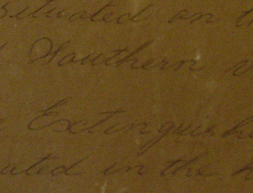 situated on th
Southern
Extinguishe
ated in the